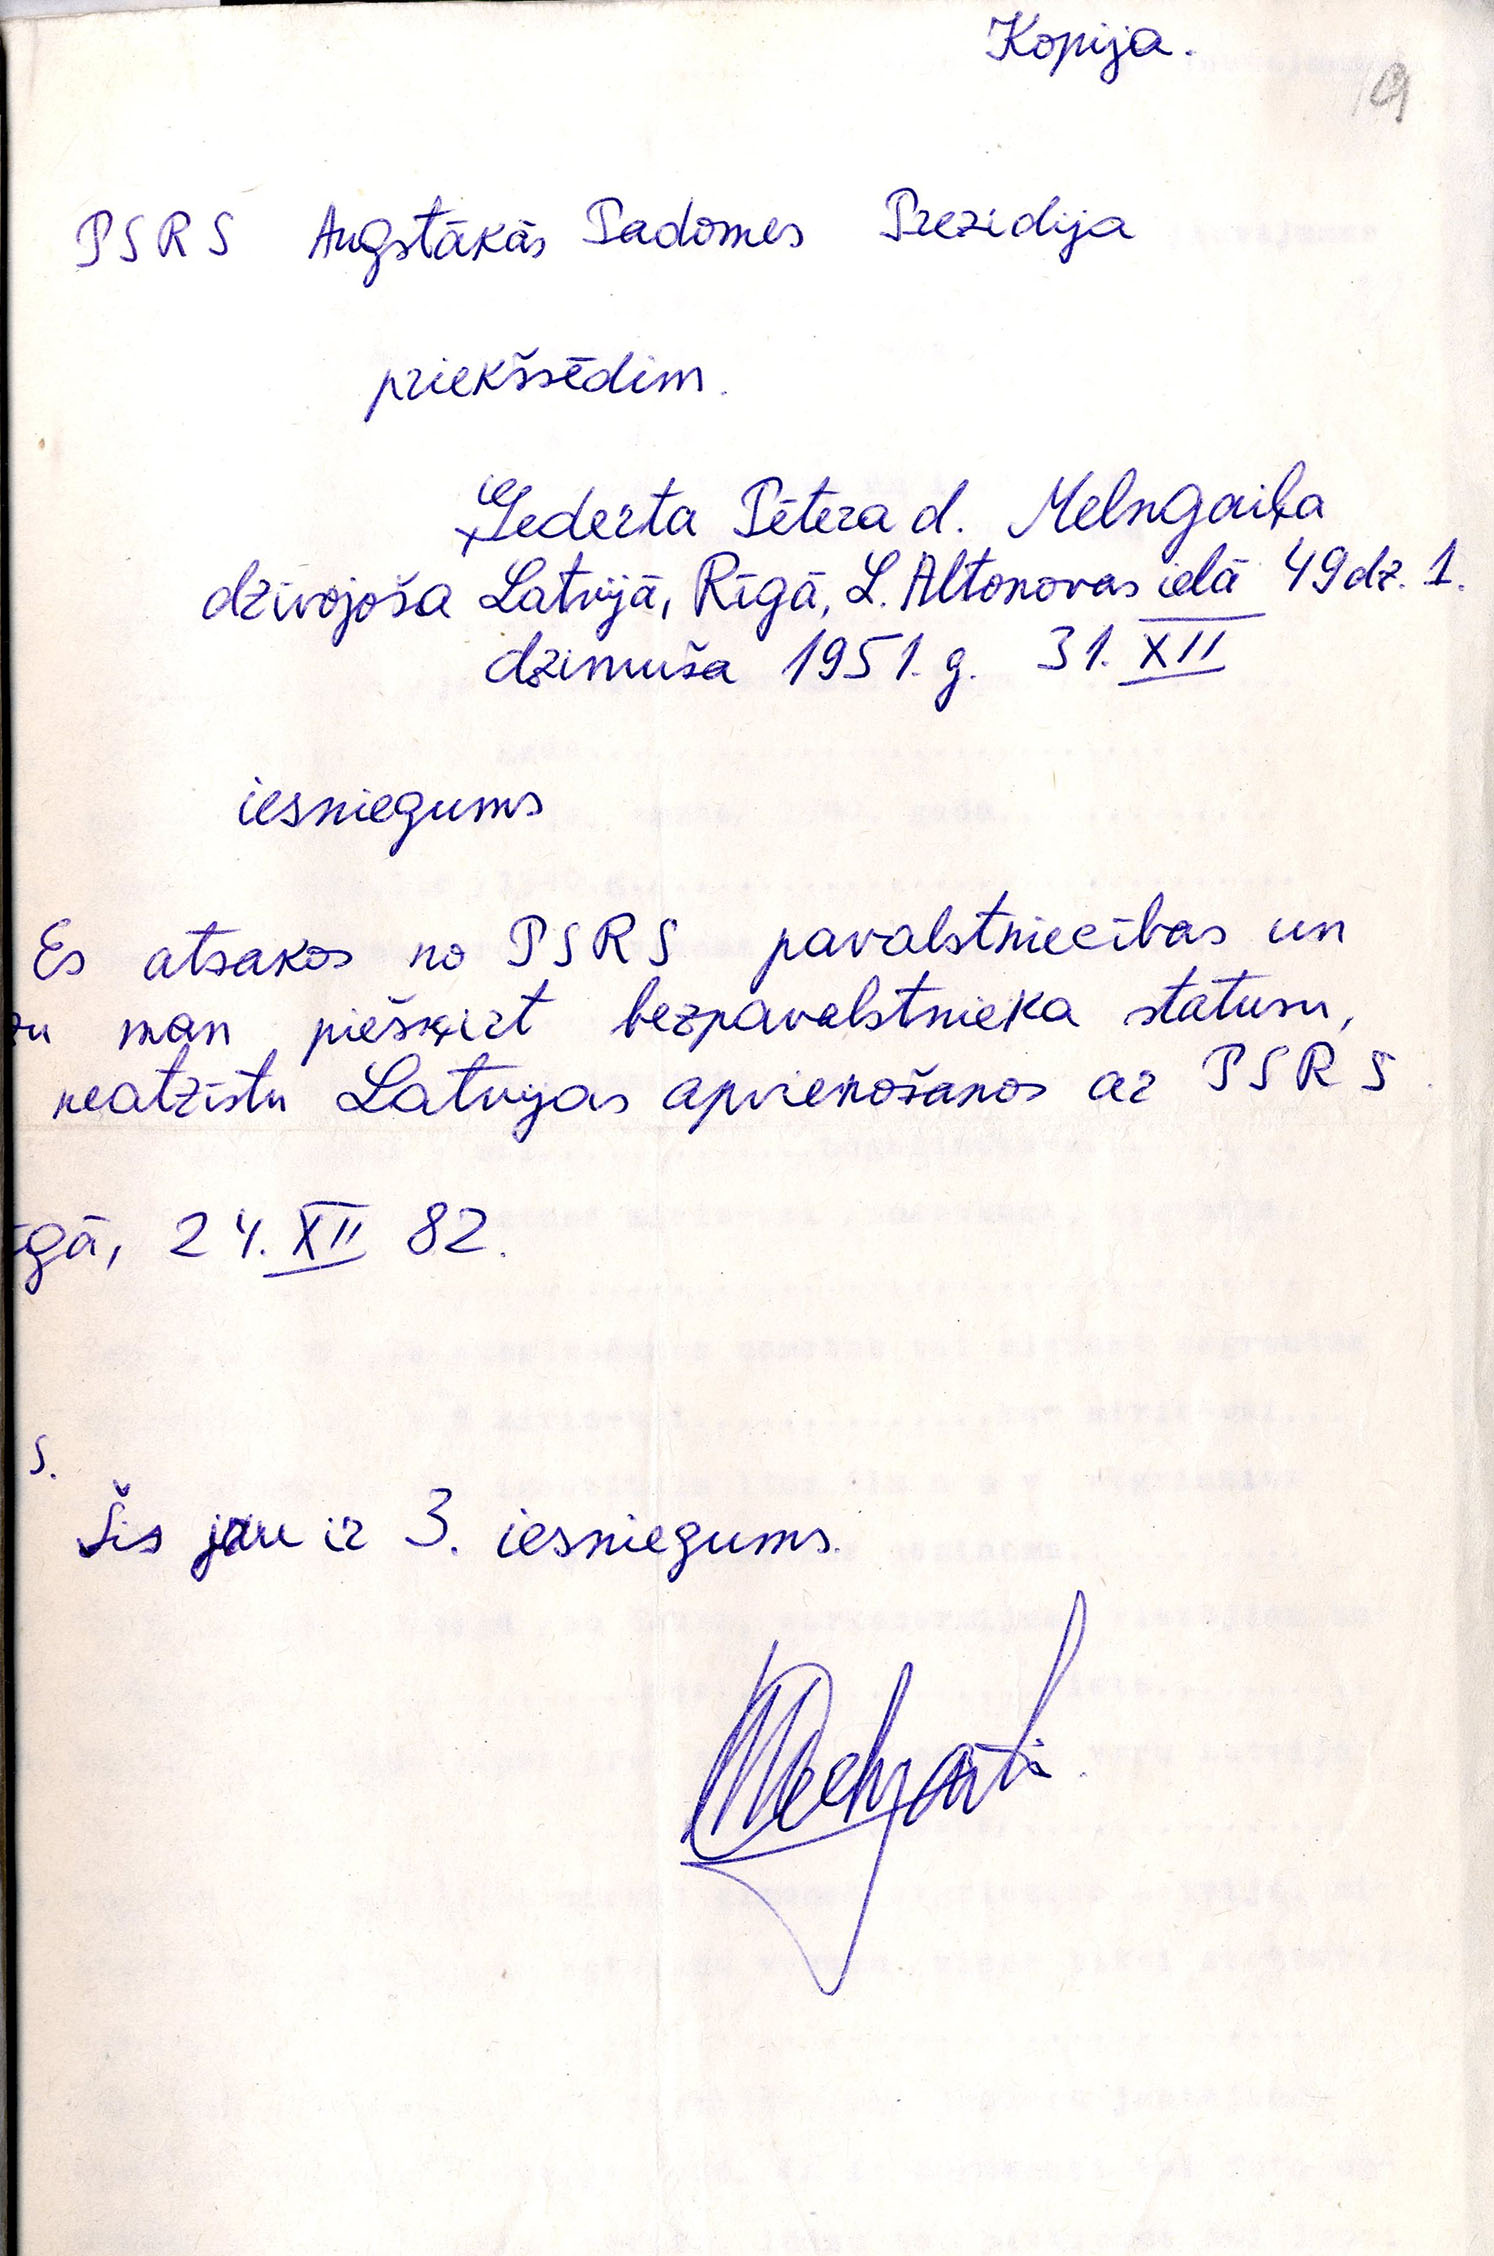 Kopija.
19
PSRS Augstākās Padomes Prezidija
priekšsēdim.
Ģederta Pētera d. Melngaiļa
dzīvojoša Latvijā, Rīgā, L. Altonovas ielā 49 dz. 1.
dzimuša 1951. g. 31. XII
iesniegums
Es atsakos no PSRS pavalstniecības un
zu man piešķirt bezpavalstnieka statusu,
neatzīstu Latvijas apvienošanos ar PSRS.
gā, 24. XII 82.
S.
Šis jau ir 3. iesniegums.